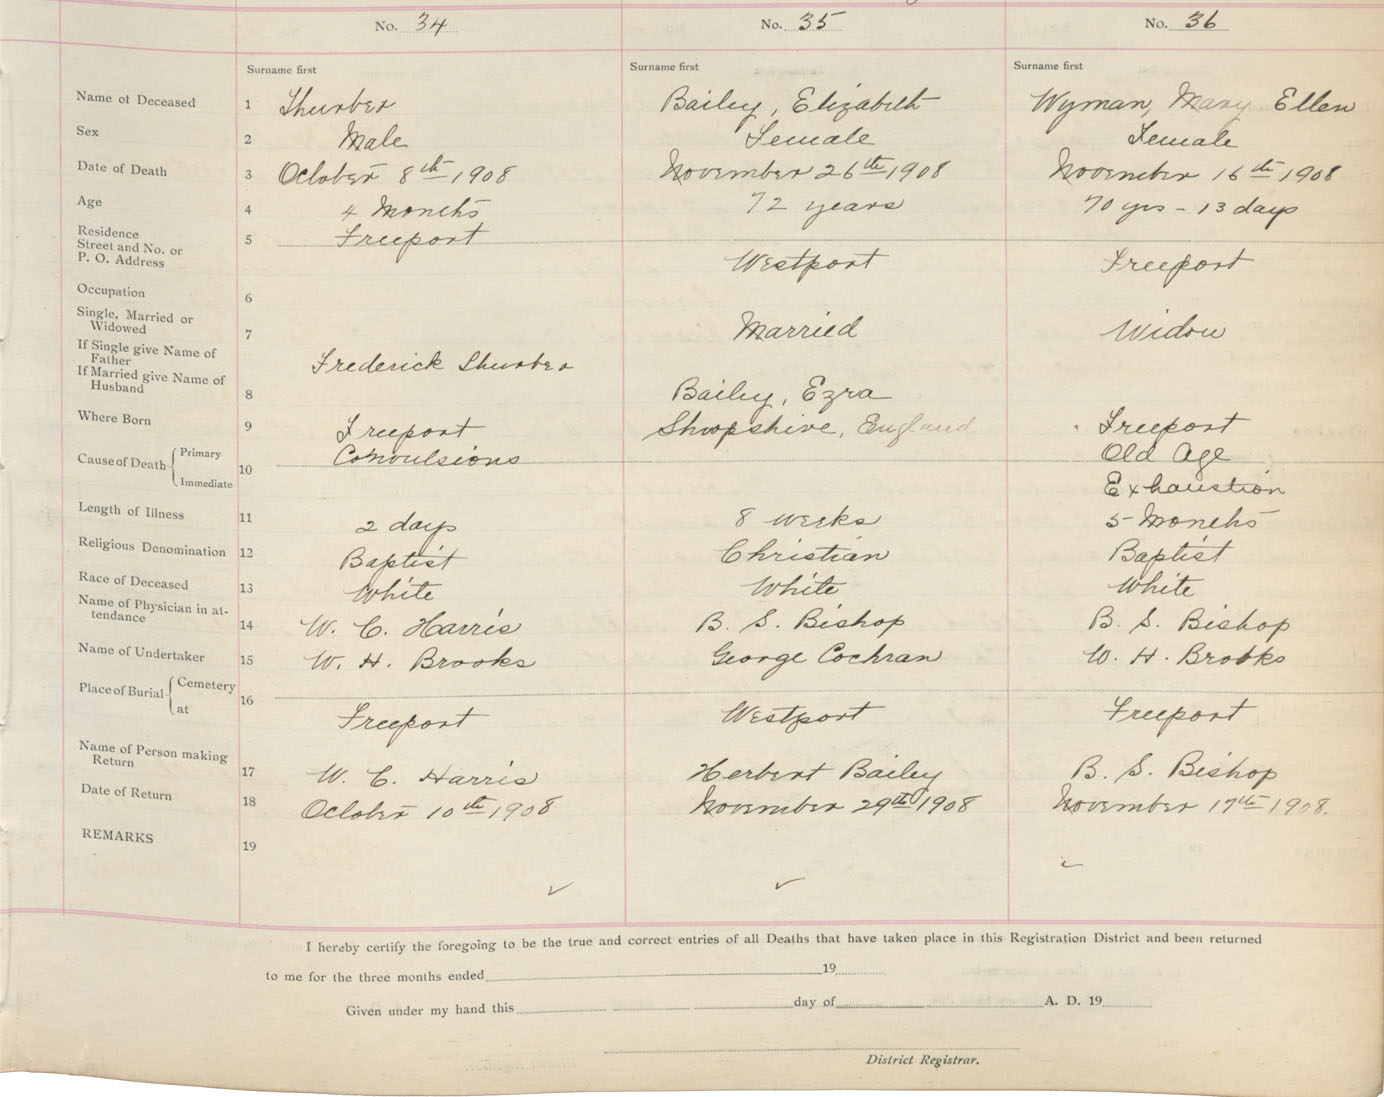 No. 34 No. 35 No. 36
Surname first Surname first Surname first
Name of Deceased 1 Thurber Bailey, Elizabeth Wyman, Mary Ellen
Sex 2 Male Female Female
Date of Death 3 October 8th 1908 November 26th 1908 November 16th 1908
Age 4 4 Months 72 years 70 yrs - 13 days
Residence
Street and No. or
P. O. Address 5 Freeport Westport Freeport
Occupation 6
Single, Married or
Widowed 7 Married Widow
If Single give Name of
Father Frederick Thurber
If Married give Name of
Husband 8 Bailey, Ezra
Where Born 9 Freeport Shropshire, England Freeport
Cause of Death Primary 10 Convulsions Old Age
Immediate Exhaustion
Length of Illness 11 2 days 8 weeks 5 Months
Religious Denomination 12 Baptist Christian Baptist
Race of Deceased 13 White White White
Name of Physician in at-
tendance 14 W. C. Harris B. S. Bishop B. S. Bishop
Name of Undertaker 15 W. H. Brooks George Cochran W. H. Brooks
Place of Burial Cemetery 16
at Freeport Westport Freeport
Name of Person making
Return 17 W. C. Harris Herbert Bailey B. S. Bishop
Date of Return 18 October 10th 1908 November 29th 1908 November 17th 1908.
REMARKS 19
I hereby certify the foregoing to be the true and correct entries of all Deaths that have taken place in this Registration District and been returned
to me for the three months ended 19
Given under my hand this day of A. D. 19
District Registrar.